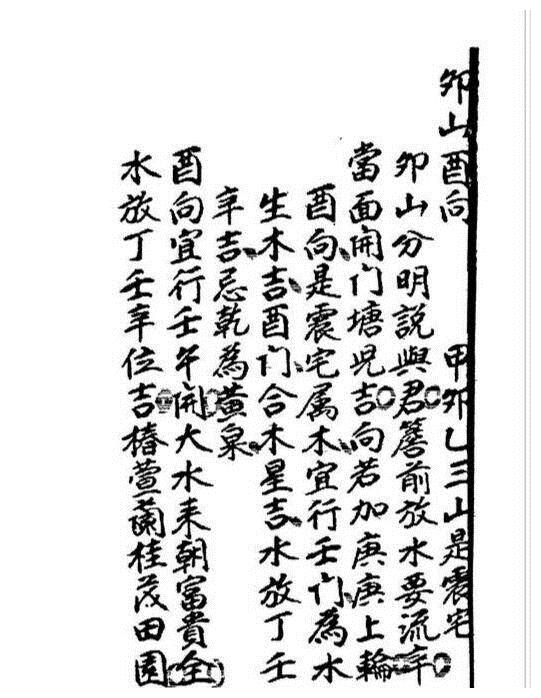 卯山酉向　甲卯乙三山是震宅
卯山分明說與君簷前放水要流辛
當面開门塘児吉向若加庚庚上輪
酉向是震宅属木宜行壬门為水
生木吉酉门合木星吉水放丁壬
辛吉忌乾為黄泉
酉向宜行壬午開大水来朝富貴全
水放丁壬辛位吉椿萱蘭桂茂田園